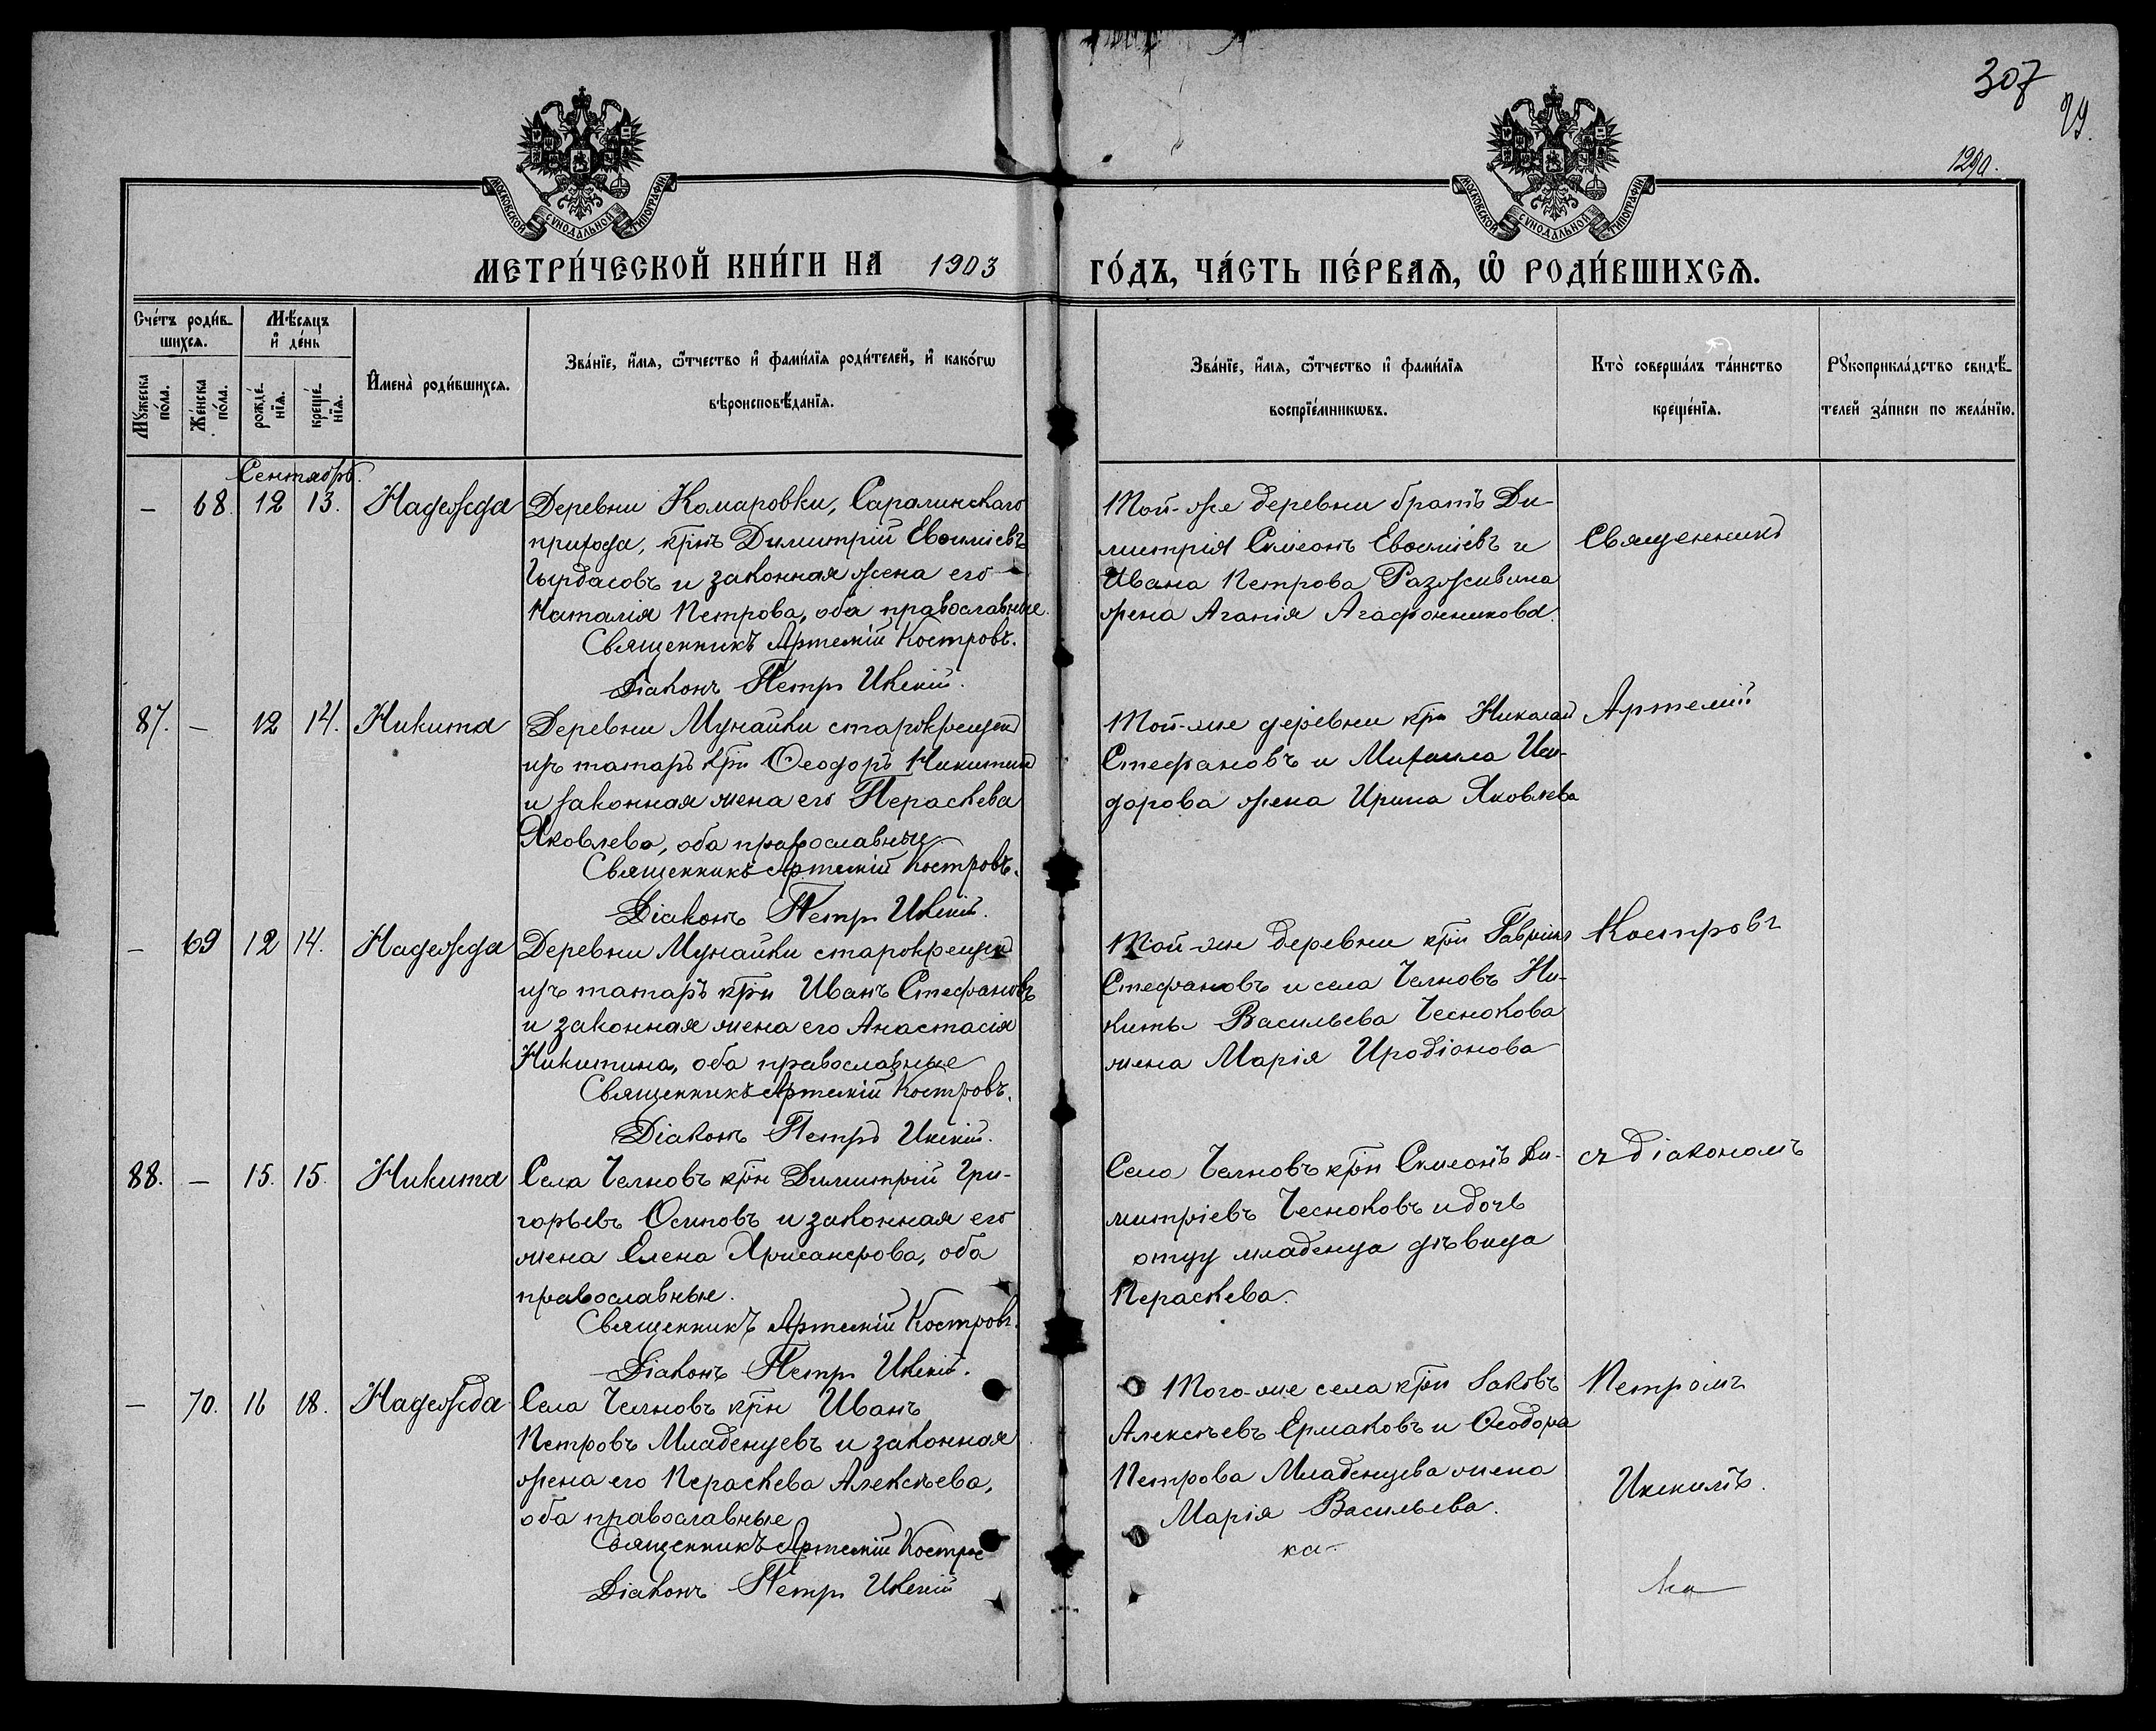 307
29.
129о.
МОСКОВСКОЙ СѴНОДАЛЬНОЙ ТИПОГРАФІИ
МОСКОВСКОЙ СѴНОДАЛЬНОЙ ТИПОГРАФІИ
МЕТРИ́ЧЕСКОЙ КНИ́ГИ НА 1903 ГО́ДЪ, ЧА́СТЬ ПЕ́РВАѦ, Ѡ҆ РОДИ́ВШИХСѦ.
Сче́тъ роди́в-
шихсѧ.
Мꙋжеска по́ла.
Же́нска по́ла.
Мѣ́сѧцъ
и҆ де́нь
рожде́-
нїѧ.
креще́-
нїѧ.
И҆мена̀ роди́вшихсѧ.
Зва́нїе, и҆́мѧ, ѻ҆́тчество и҆ фами́лїѧ роди́телей, и҆ како́гѡ
вѣроисповѣ́данїѧ.
Зва́нїе, и҆́мѧ, ѻ҆́тчество и҆ фами́лїѧ
воспрїе́мникѡвъ.
Кто̀ соверша́лъ та́инство
креще́нїѧ.
Рꙋкоприкла́дство свидѣ́-
телей за́писи по жела́нїю.
Сентябрь.
– 68. 12 13. Надежда
Деревни Комаровки, Саралинскаго
прихода, крнъ Димитрій Евѳиміевъ
Гырдасовъ и законная жена его
Наталія Петрова, оба православные.
Священникъ Артемій Костровъ.
Діаконъ Петръ Икскій.
Той-же деревни братъ Ди-
митрія Симеонъ Евѳиміевъ и
Ивана Петрова Разживина
жена Агапія Агафонникова.
87. – 12 14. Никита
Деревни Мунайки старокрещен
изъ татаръ крн Ѳеодоръ Никитинъ
и законная жена его Параскева
Яковлева, оба православные
Священникъ Артемій Костровъ.
Діаконъ Петръ Икскій.
Той-же деревни крн Николай
Стефановъ и Михаила Иси-
дорова жена Ирина Яковлева
– 69 12 14. Надежда
Деревни Мунайки старокрещен
изъ татаръ крн Иванъ Стефановъ
и законная жена его Анастасія
Никитина, оба православные
Священникъ Артемій Костровъ.
Діаконъ Петръ Икскій.
Той-же деревни крн Гавріилъ
Стефановъ и села Челновъ Ни-
киты Васильева Чеснокова
жена Марія Иродіонова
88. – 15. 15. Никита
Села Челновъ крн Димитрій Гри-
горьевъ Осиповъ и законная его
жена Елена Хрисанфова, оба
православные.
Священникъ Артемій Костровъ.
Діаконъ Петръ Икскій.
Села Челновъ крн Симеонъ Ди-
митріевъ Чесноковъ и дочь
отцу младенца дѣвица
Параскева.
– 70. 16 18. Надежда
Села Челновъ крн Иванъ
Петровъ Младенцевъ и законная
жена его Параскева Алексѣева,
оба православные
Священникъ Артемій Костров
Діаконъ Петръ Икскій
Того-же села крн Іаковъ
Алексѣевъ Ермаковъ и Ѳеодора
Петрова Младенцева жена
Марія Васильева.
ка-
Священникъ
Артемій
Костровъ
съ діакономъ
Петромъ
Икскимъ.